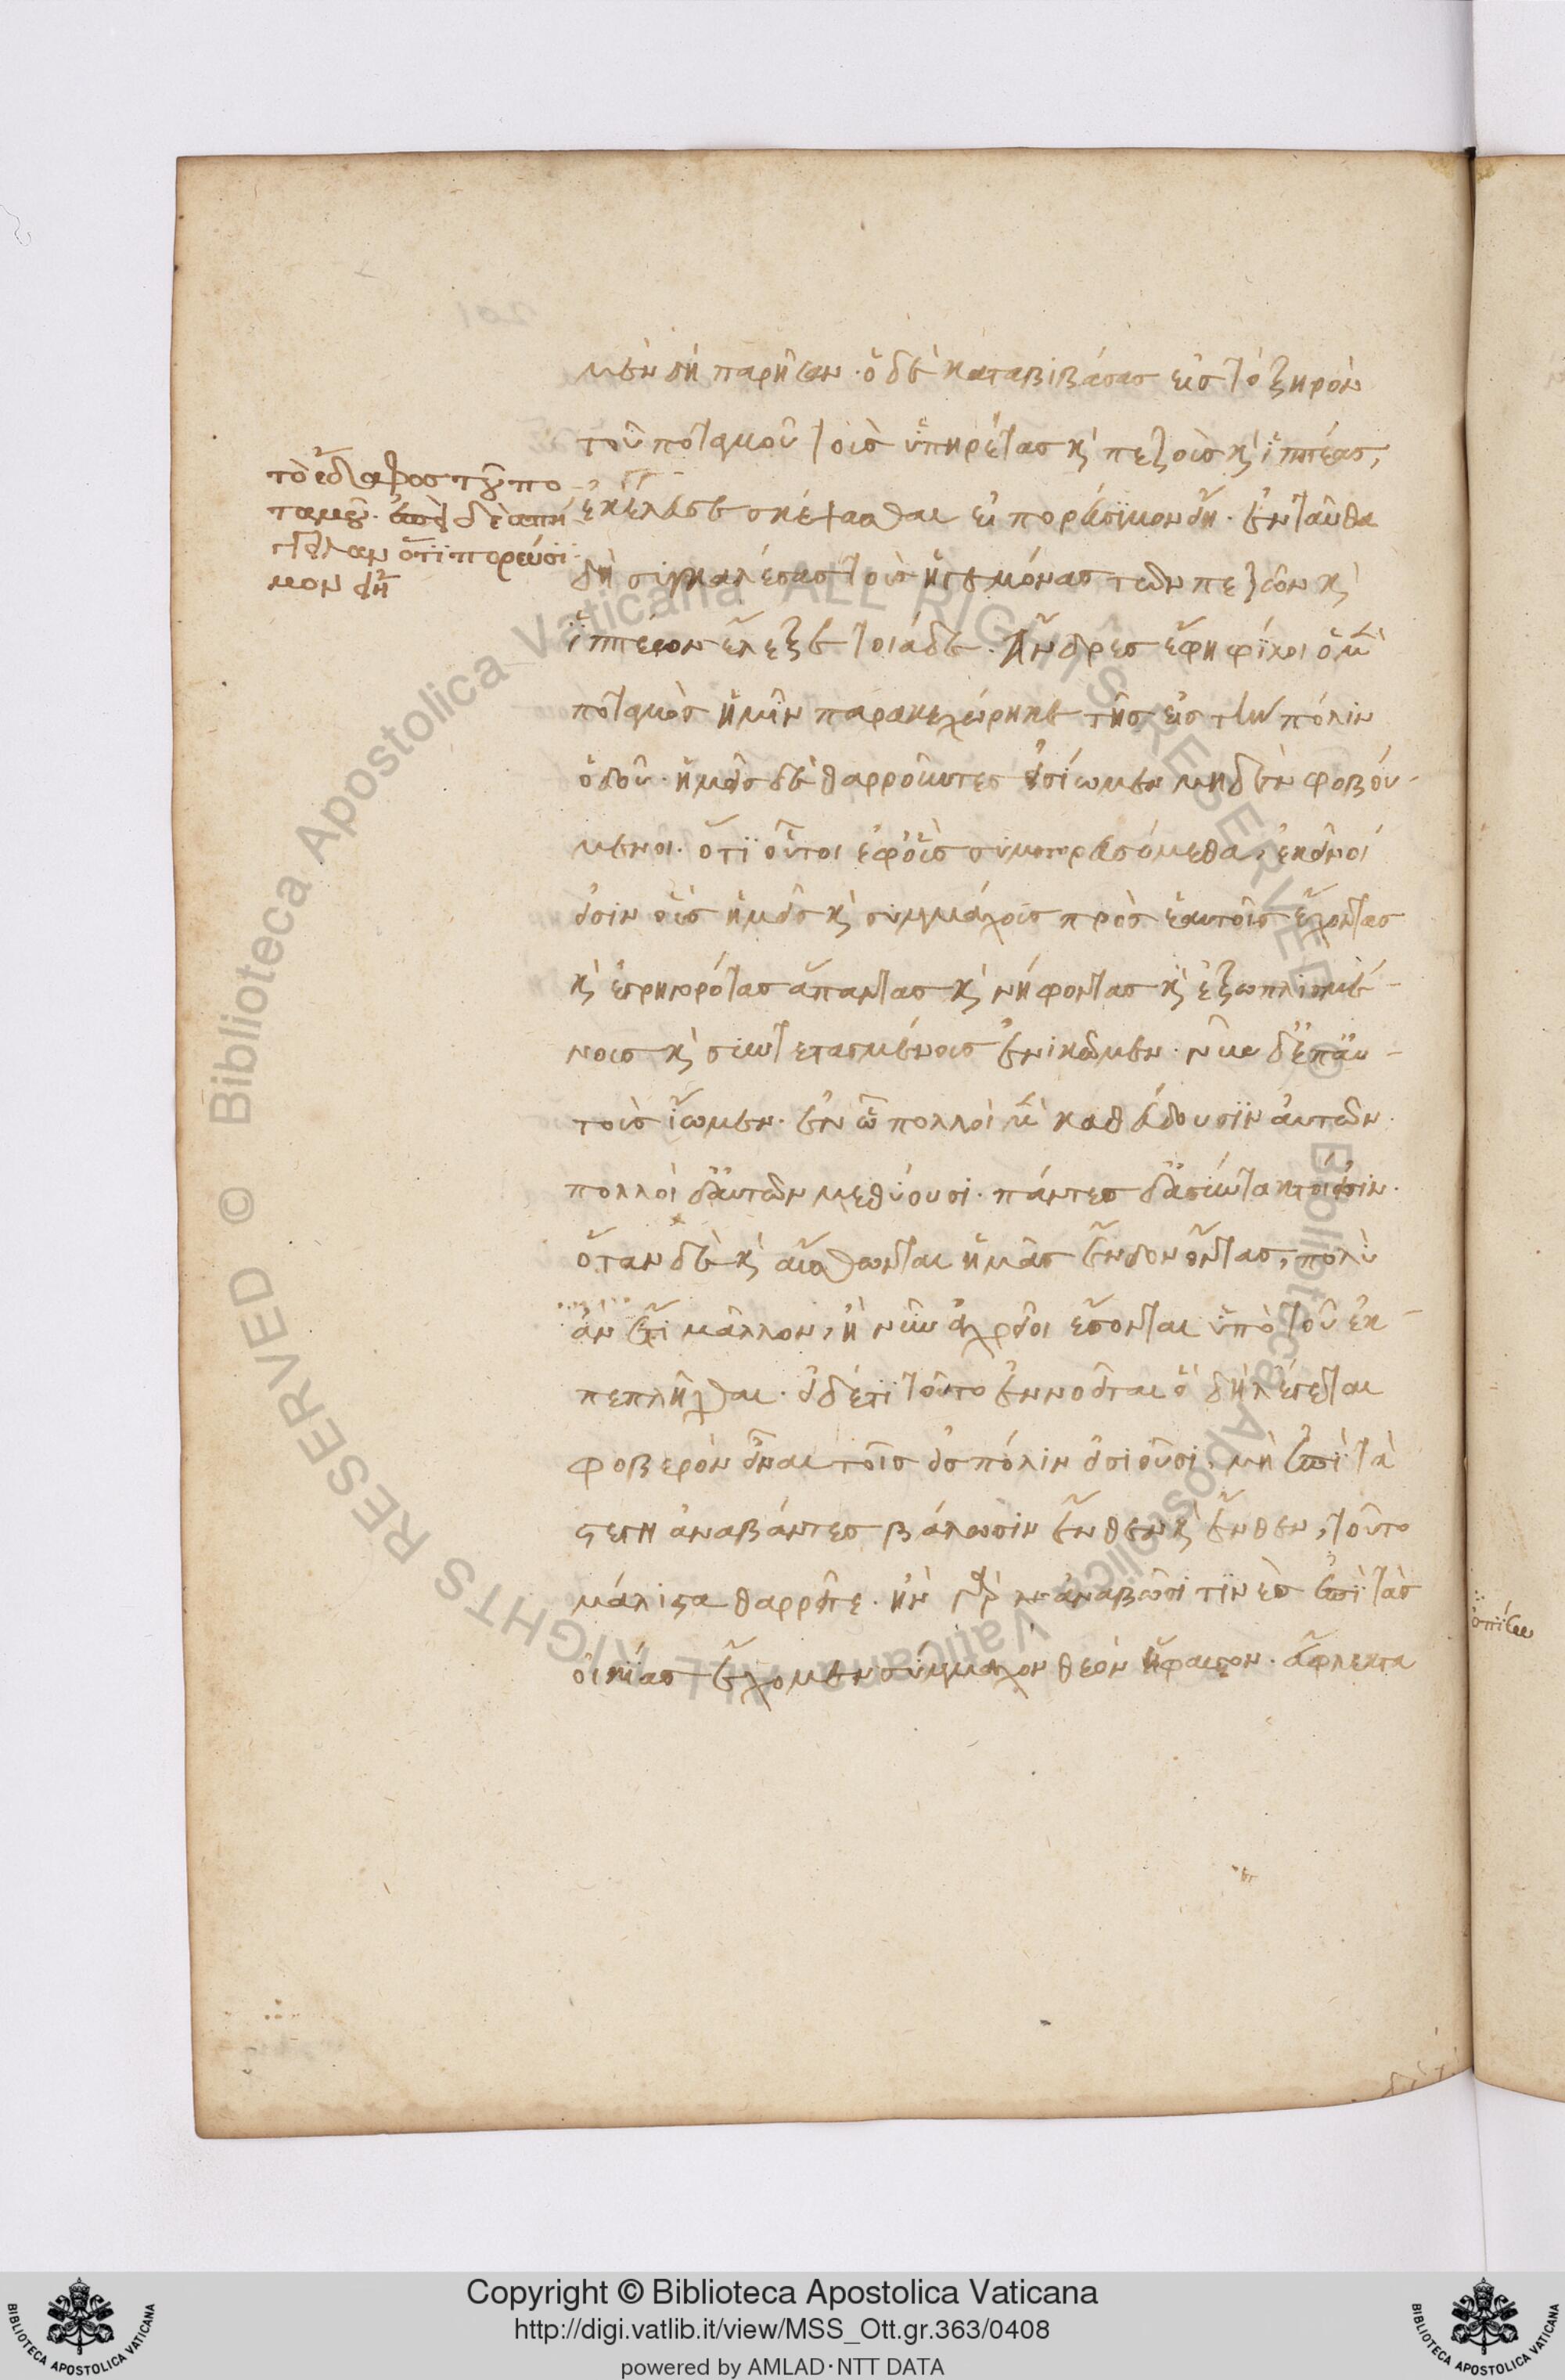 μὲν δὴ παρῆσαν· ὁ δὲ καταβιβάσας εἰς τὸ ξηρὸν
τοῦ ποταμοῦ τοὺς ὑπηρέτας κ πεζοὺς κ ἱππέας,
ἐκέλευσε σκέψασθαι εἰ πορεύσιμον εἴη. ἐνταῦθα
δὴ συγκαλέσας τοὺς ἡγεμόνας τῶν πεζῶν κ
ἱππέων ἔλεξε τοιάδε. Ἄνδρες ἔφη φίλοι ὁ μὲν
ποταμὸς ἡμῖν παρακεχώρηκε τῆς εἰς τὴν πόλιν
ὁδοῦ· ἡμεῖς δὲ θαρροῦντες εἰσίωμεν μηδὲν φοβού-
μενοι. ὅτι οὗτοι ἐφ' οὓς συμπορευσόμεθα, ἐκεῖνοί
εἰσιν οὓς ἡμεῖς κ συμμάχους πρὸς ἑαυτοῖς ἔχοντας
κ ἐγρηγορότας ἅπαντας κ νήφοντας κ ἐξωπλισμέ-
νους κ συντεταγμένους ἐνικῶμεν. νῦν δ' ἐπ' αὐ-
τοὺς ἴωμεν. ἐν ᾧ πολλοὶ μὲν καθεύδουσιν αὐτῶν·
πολλοὶ δ' αὐτῶν μεθύουσι· πάντες δ' ἀσύντακτοί εἰσιν.
ὅταν δὲ κ αἴσθωνται ἡμᾶς ἔνδον ὄντας, πολὺ
ἂν ἔτι μᾶλλον, ἢ νῦν ἀχρεῖοι ἔσονται ὑπὸ τοῦ ἐκ-
πεπλῆχθαι. εἰ δέ τι τοῦτο ἐννοεῖται ὃ δὴ λέγεται
φοβερὸν εἶναι τοῖς εἰς πόλιν εἰσιοῦσι, μὴ ἐπὶ τὰ
στέγη ἀναβάντες βάλωσιν ἔνθεν κ ἔνθεν, τοῦτο
μάλιστα θαρρεῖτε. ἢν γὰρ ἀναβῶσί τινες ἐπὶ τὰς
οἰκίας ἔχομεν σύμμαχον θεὸν Ἥφαιστον. εὔφλεκτα
τὸ ἔδαφος τοῦ πο
ταμοῦ. ἐπεὶ δὲ ἀπή
γγειλαν ὅτι πορεύσι
μον εἴη
Copyright © Biblioteca Apostolica Vaticana
http://digi.vatlib.it/view/MSS_Ott.gr.363/0408
powered by AMLAD·NTT DATA
BIBLIOTECA APOSTOLICA VATICANA
BIBLIOTECA APOSTOLICA VATICANA
© Biblioteca Apostolica Vaticana ALL RIGHTS RESERVED
© Biblioteca Apostolica Vaticana ALL RIGHTS RESERVED